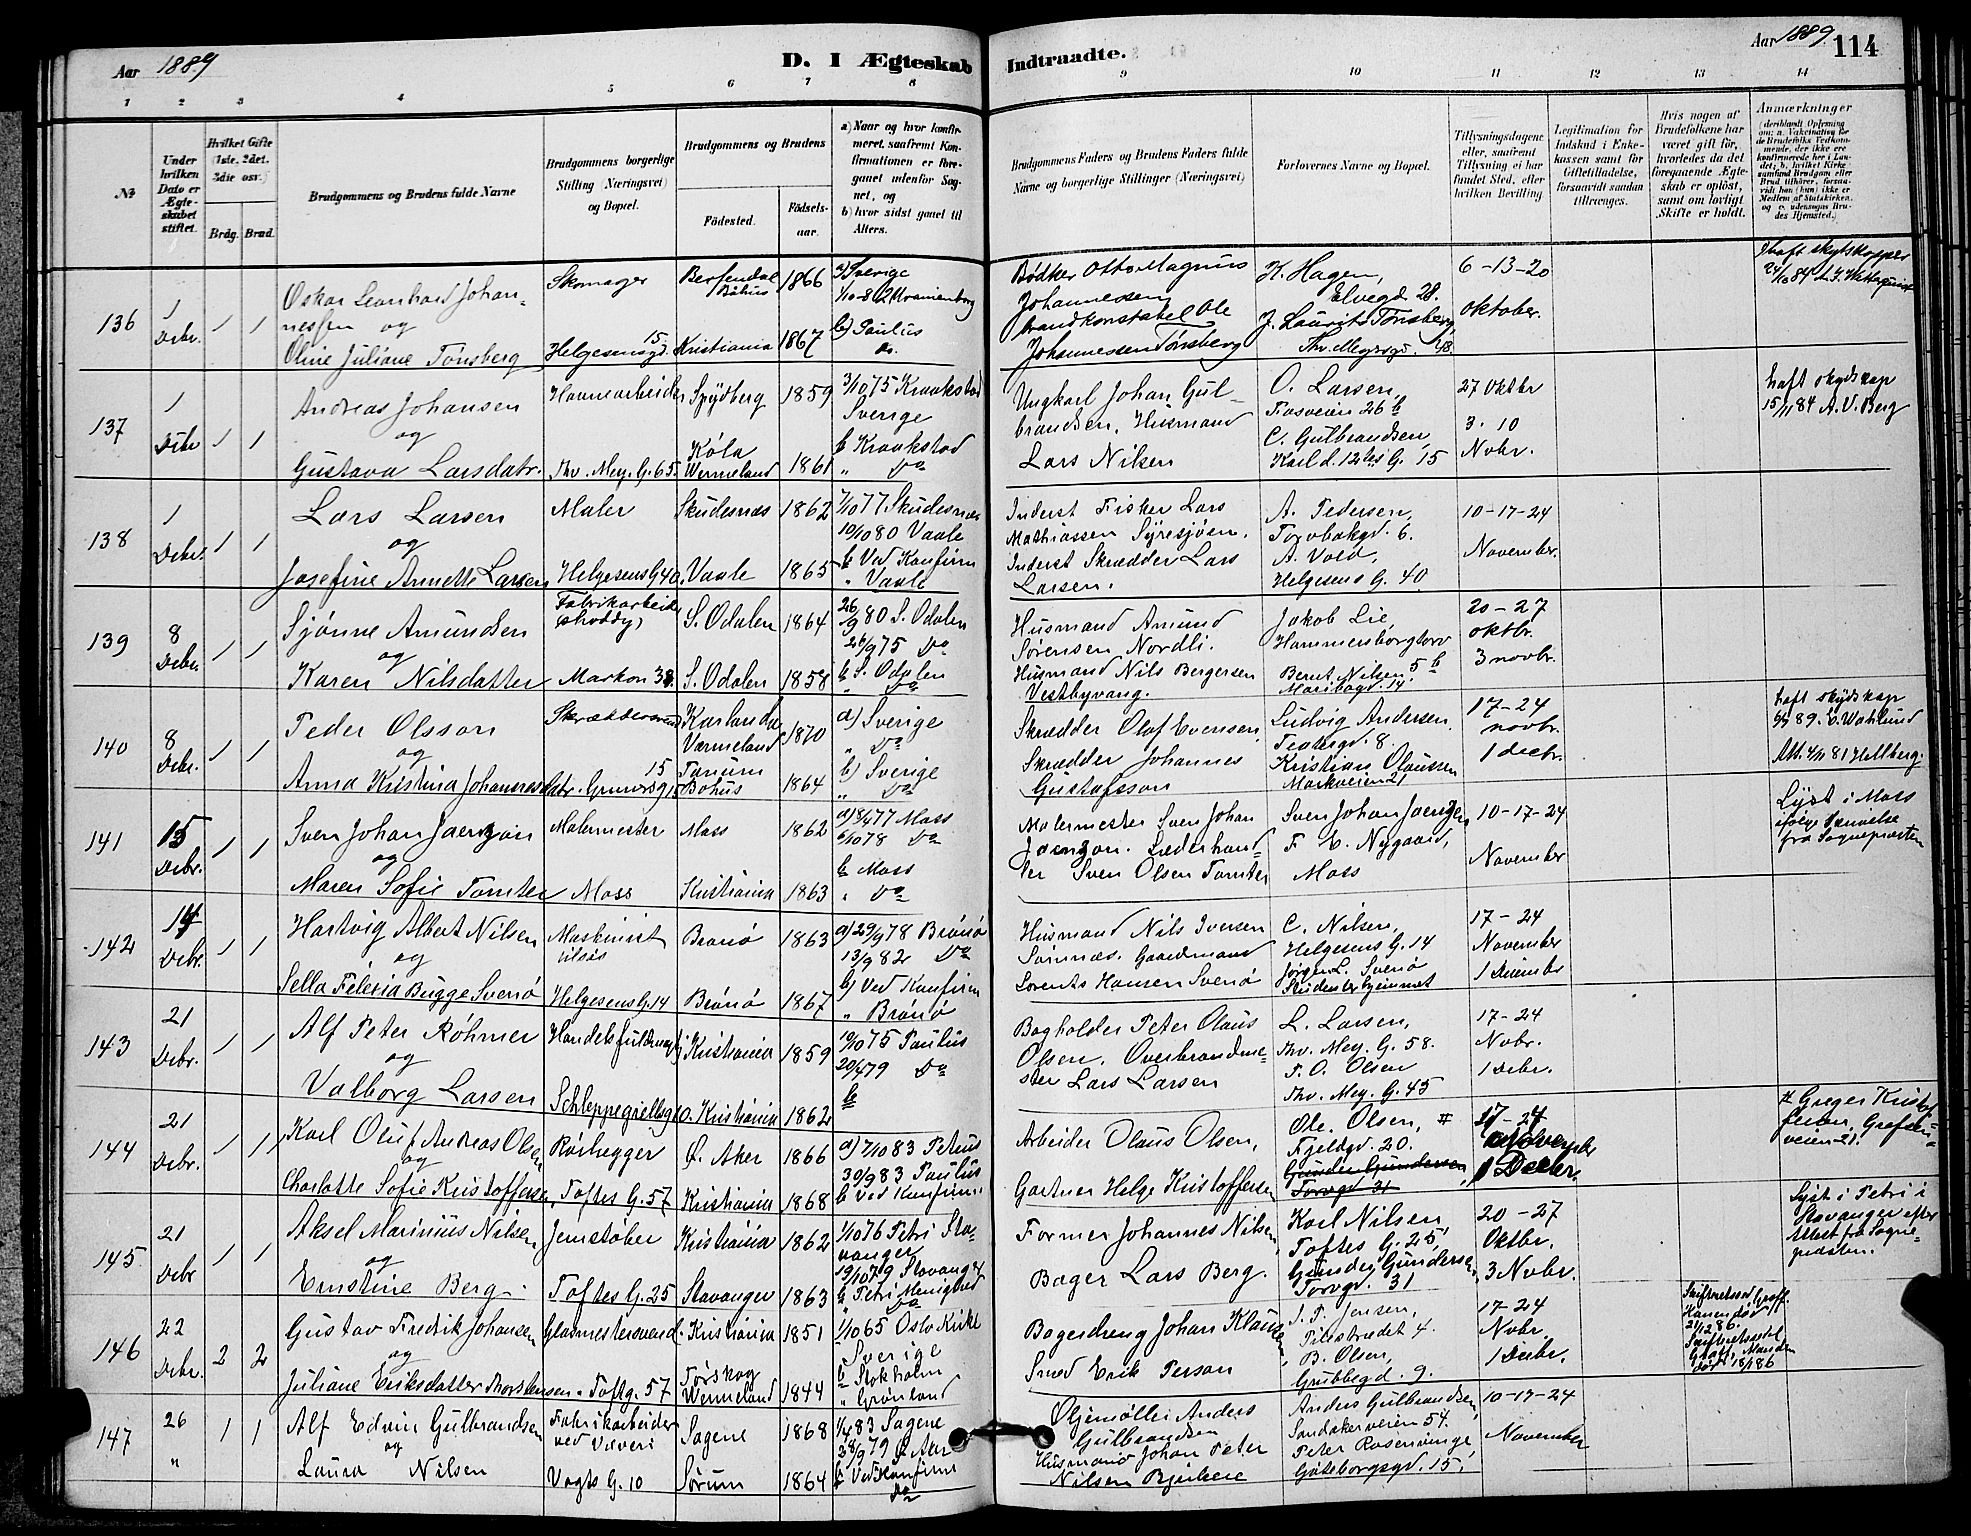 Aar 1889
D. I Ægteskab
Indtraadte.
Aar 1889. 114
1 2 3 4 5 6 7 8 9 10 11 12 13 14
№
Under
hvilken
Dato er
Ægte-
skabet
stiftet.
Hvilket Gifte
(1ste, 2det,
3die osv.)
Brdg. Brud.
Brudgommens og Brudens fulde Navne
Brudgommens borgerlige
Stilling (Næringsvei)
og Bopæl.
Brudgommens og Brudens
Fødested.
Fødsels-
aar.
a) Naar og hvor konfir-
meret, saafremt Kon-
firmationen er fore-
gaaet udenfor Sog-
net, og
b) hvor sidst gaaet til
Alters.
Brudgommens Faders og Brudens Faders fulde
Navne og borgerlige Stillinger (Næringsvei)
Forlovernes Navne og Bopæl.
Tillysningsdagene
eller, saafremt
Tillysning ei har
fundet Sted, efter
hvilken Bevilling
Legitimation for
Indskud i Enke-
kassen samt for
Giftetilladelse,
forsaavidt saadan
tiltrænges.
Hvis nogen af
Brudefolkene har
været gift før,
hvorledes da det
foregaaende Ægte-
skab er opløst,
samt om lovligt
Skifte er holdt.
Anmærkninger
(deriblandt Opføring
om: a. Vakcination for
de Brudefolks Vedkom-
mende, der ikke ere
konfirmerede her i Lan-
det; b. hvilket Kirke-
samfund Brudgom eller
Brud tilhører, forsaa-
vidt han (hun) ikke er
Medlem af Statskirken,
og c. udensogns Bru-
des Hjemsted.)
136 1 Debr. 1 1
Oskar Leonhard Johan-
nessen og
Oline Juliane Tønsberg
Skomager
Helgesensgd. 15
Bohus 1866
Kristiania 1867
a) Sverige
b) Paulus
Do.
Bødker Otto Magnus
Johannessen
brandkonstabel Ole
Johannessen Tønsberg
K. Hagen,
Elvegd 28.
J. Laurits Tønsberg,
Thv. Meyersgd. 48.
6-13-20
oktober.
137 1 Debr 1 1
Andreas Johansen
og
Gustava Larsdatr.
Havnearbeider
Thv. Mey. G. 65.
Spydberg 1859
Köla
Wermeland 1861
3/10 75 Kraakstad
Sverige
b Kraakstad
" Do
Ungkarl Johan Gul-
brandsen, Husmand
Lars Nilsen
O. Larsen,
Fosveien 26 b
C. Gulbrandsen,
Karl d. 12tes G. 15
27 Oktbr
3. 10
Novbr.
haft skydskop
15/11 84 A. V. Berg
138 1 Debr. 1 1
Lars Larsen
og
Josefine Annette Larsen
Maler
Helgesens G 40
Skudesnæs 1862
Vaale 1865
7/10 77 Skudesnæs
10/10 80 Vaale
b Ved Konfirm
" Vaale
Inderst Fisker Lars
Mathiassen Syresjøen.
Inderst Skrædder Lars
Larsen.
A. Pedersen,
Torvbakgd. 6.
A. Vold,
Helgesens G. 40
10-17-24
November.
139 8 Debr 1 1
Sjønne Amundsen
og
Karen Nilsdatter
Fabrikarbeider
(shoddy)
Markvn 38.
S. Odalen 1864
S. Odalen 1858
26/9 80 S. Odalen
26/9 75 Do
b S. Odalen
" Do
Husmand Amund
Sørensen Nordli.
Husmand Nils Bergersen
Vestbyvang.
Jakob Lie,
Hammersborgtorv
5 b
Bernt Nilsen,
Maribogd. 14.
20-27
oktbr.
3 novbr.
140 8 Debr. 1 1
Peder Olsson
og
Anna Kristina Johannesdatr.
Skræddersvend
Grünersg 15
Karlanda
Værmeland 1870
Tanum
Bohus 1864
a) Sverige
" Do
b) Sverige
" Do
Skrædder Olof Evensen
Skrædder Johannes
Gustafsson
Ludvig Andersen
Kristian Olaussen
Markveien 21
17-24
novbr.
1 decbr.
haft skydskop
141 15 Debr. 1 1
Sven Johan Joenzon
og
Maren Sofie Tomter
Malermester
Moss
Moss 1862
Kristiania 1863
a) 8/4 77 Moss
6/10 78 Do
b Moss
" Do
Malermester Sven Johan
Joenzon. Læderhand-
ler Sven Olsen Tomter
Sven Johan Joenzon,
F. E. Nygaard,
Moss
10-17-24
November
Lyst i Moss
ifølge Skrivelse
fra Sognepræsten
142 14 Debr. 1 1
Hartvig Albert Nilsen
og
Sella Felixia Bugge Svenø
Maskinist
Helgesens G. 14
Brønø 1863
Brønø 1867
a) 29/9 78 Brønø
13/9 82 Do
b) Ved Konfirm
" Brønø
Husmand Nils Iversen
Sømnæs. Gaardmand
Lorents Hansen Svenø
C. Nilsen,
Helgesens G. 14
Jørgen L. Svenø
Studenterhjemmet
17-24
November
1 Decembr
143 21 Debr. 1 1
Alf Peter Røhmer
og
Valborg Larsen
Handelsfuldmægtig
Schleppegrellsgd
Kristiania 1859
Kristiania 1862
10/10 75 Paulus
20/4 79 Do
b
Bogholder Peter Olaus
Olsen. Overbrandme-
ster Lars Larsen
L. Larsen,
Thv. Mey. G. 58.
P. O. Olsen
Thv. Mey. G. 45
17-24
Nobr.
1 Debr.
144 21 Debr. 1 1
Karl Oluf Andreas Olsen
og
Charlotte Sofie Kristoffersen
Rørlægger
Toftes G. 57
Ø. Aker 1866
Kristiania 1868
a) 7/10 83 Petrus
30/9 83 Paulus
b Ved Konfirm.
Arbeider Olaus Olsen,
Gartner Helge Kristoffersen
Ole. Olsen, #
Fjeldgd. 20.
Gunder Gundersen,
Torvgd. 31
17-24
November
1 Decbr.
# Greger Kristof-
fersen, Grefsen-
veien 21.
145. 21 Debr 1 1
Aksel Marinius Nilsen
og
Ernstine Berg
Jernstøber
Toftes G. 25
Kristiania 1862
Stavanger 1863
1/10 76 Petri Sta-
vanger
19/10 79 Stavanger
b Petri Menighed
" Do
Former Johannes Nilsen,
Bager Lars Berg.
Karl Nilsen,
Toftes G. 25,
Gunder Gundersen,
Torvgd. 31
20-27
Oktbr.
3 Novbr.
Lyst i Petri i
Stavanger efter
Attest fra Sogne-
præsten.
146 22 Debr. 2 2
Gustav Fredrik Johansen
og
Juliane Eriksdatter Thorstensen
Glasmestersvend
Toftg. 57
Kristiania 1851
Tørskog
Wermeland 1844
1/10 65 Oslo Kirke
Sverige
b Stokholm
" Grønland
Bagerdreng Johan Klausen,
Smed Erik Person
J. P. Jensen,
Pilestrædet 4.
B. Olsen,
Grubbegd. 9.
17-24
Nobr.
1 Decbr.
147 26 " 1 1
Alf Edvin Gulbrandsen
og
Laura Nilsen
Fabrikarbeider
ved Væveri
Vogts G. 10
Sagene 1868
Sørum 1864
1/4 83 Sagene
28/9 79 Ø. Aker
b Ved Konfirm
Do
Oljemøller Anders
Gulbrandsen
Husmand Johan Peter
Nilsen Bjerkeie
Anders Gulbrandsen,
Sandakerveien 54.
Peter Rosenvinge
Göteborgsgd. 15,
10-17-24
November